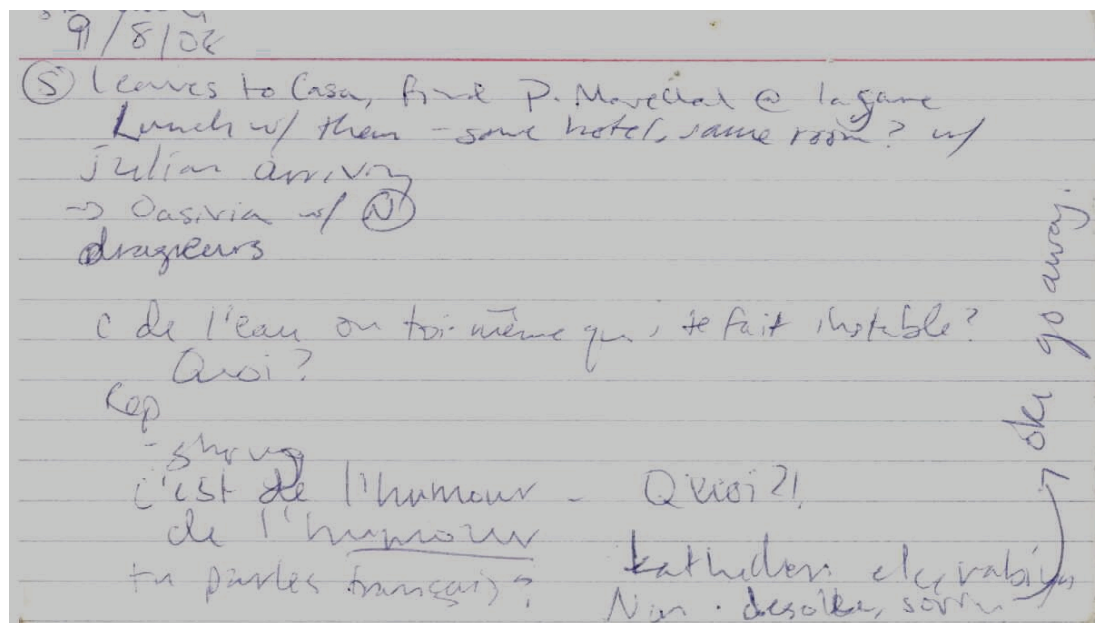 9/8/08
Ⓢ leaves to Casa, find P. Marechal @ la gare
Lunch w/ them - same hotel, same room? w/
julian arriving
→ Oasivia w/ Ⓝ
dragueurs
C de l'eau ou toi-même qui te fait instable?
Quoi?
Rep
- shrug
C'est de l'humour - Quoi?!
de l'humour
tu parles français?
Non. desolée, sorry
ok go away.